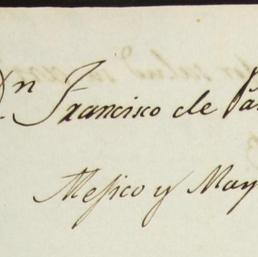 Dn Francisco de Pa
Mexico y May